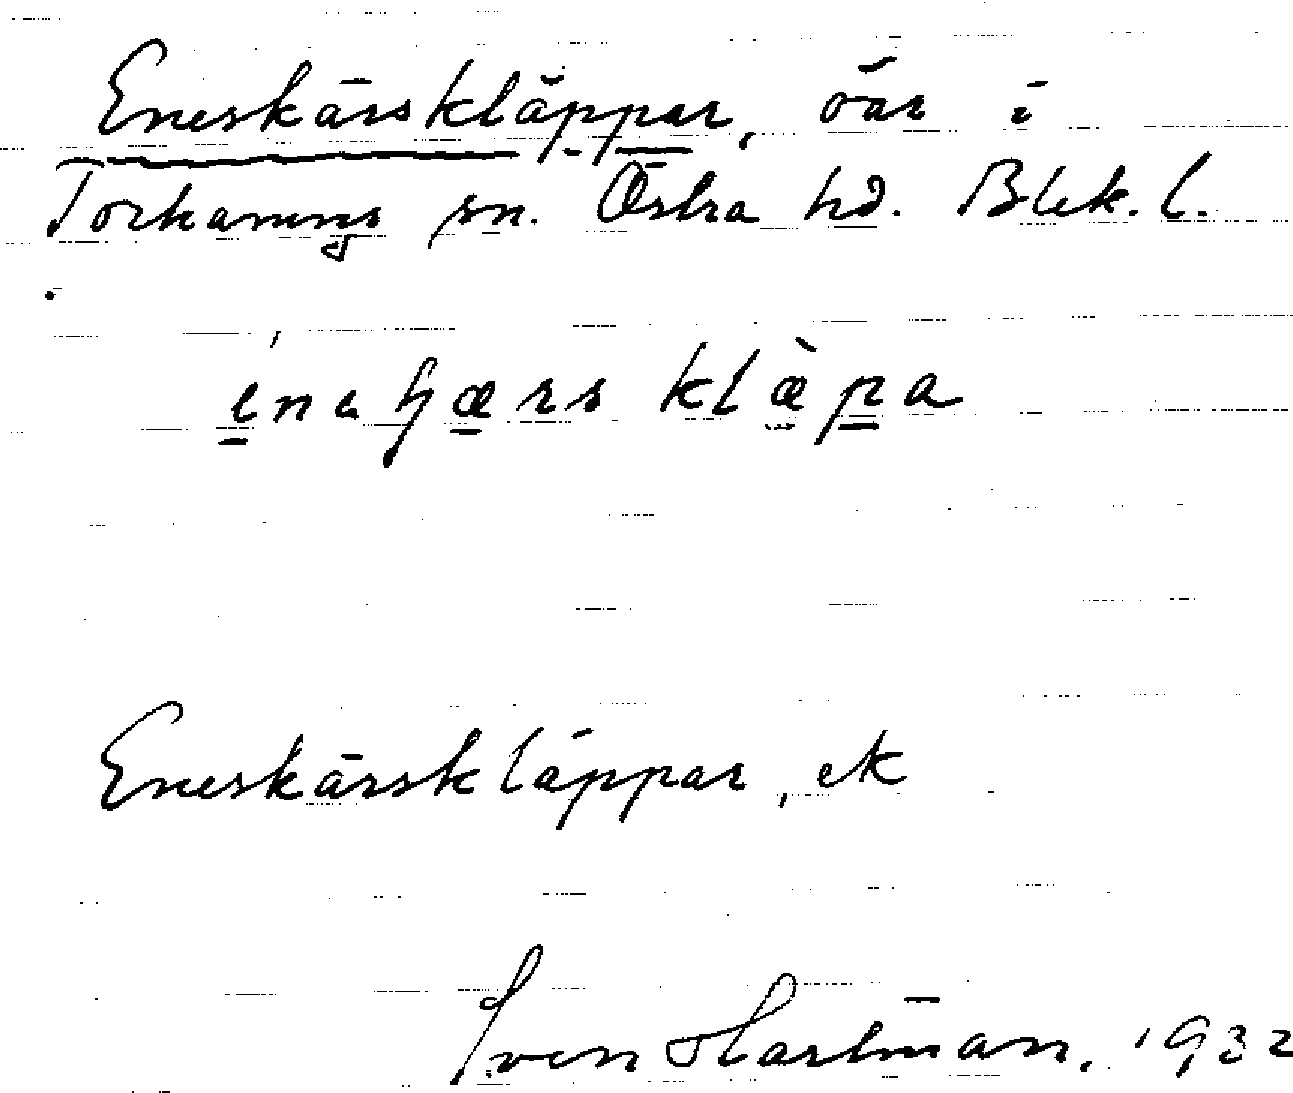 Eneskärskläppar, öar i
Torhamns sn. Östra hd. Blek. l.
kläpa
Eneskärskläppar, ek
Sven Hartman. 1932